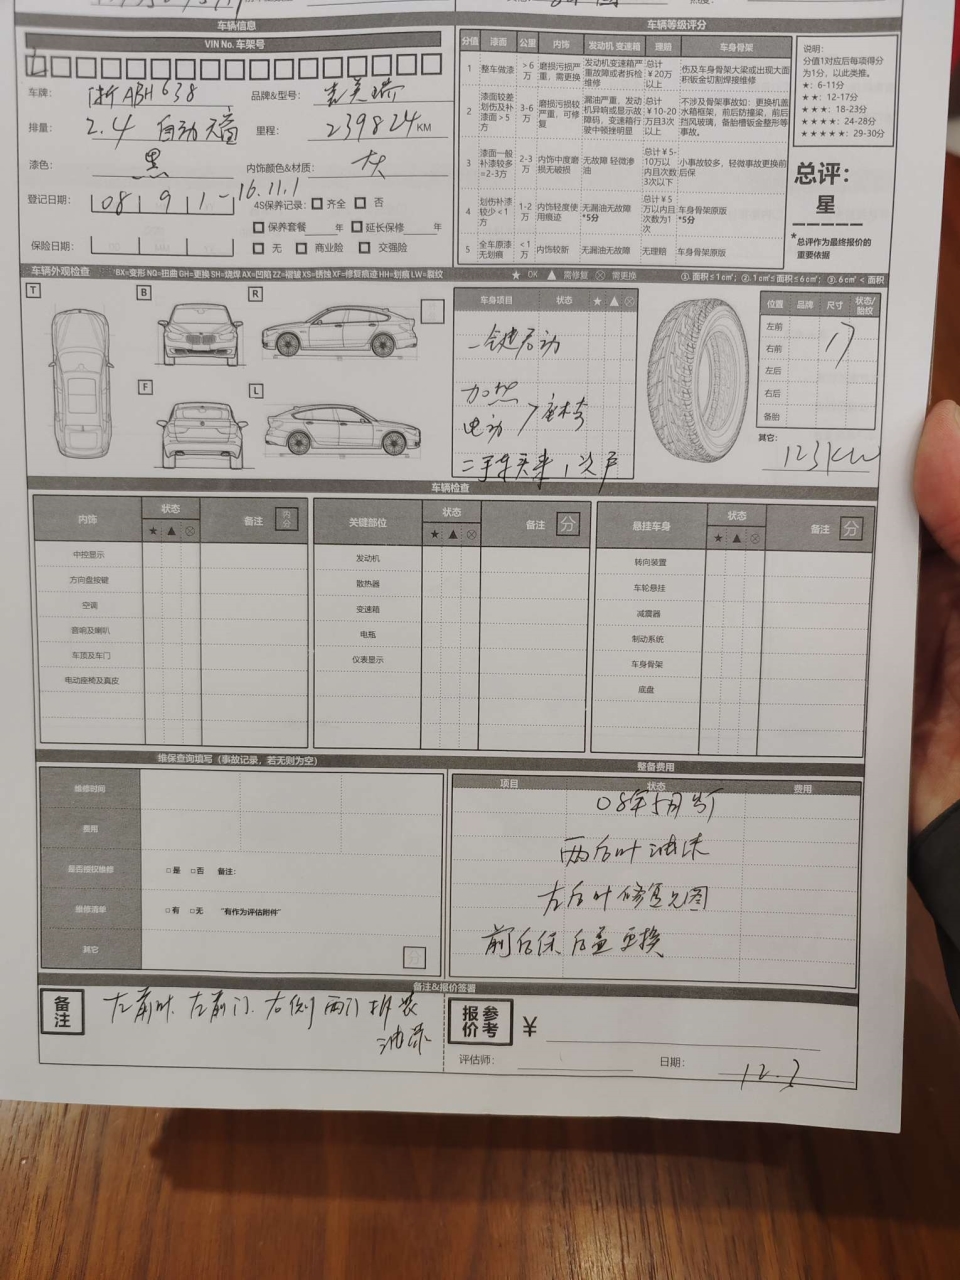 车辆信息
VIN No. 车架号
车牌: 浙ABH638 品牌&型号: 克莱斯勒
排量: 2.4 自动天窗 里程: 239824 KM
漆色: 黑 内饰颜色&材质: 灰
登记日期: 08 9 1 - 16.11.1 4S保养记录: 齐全 否
保养套餐 年 延长保修 年
保险日期: 无 商业险 交强险
车辆等级评分
分值 漆面 公里 内饰 发动机 变速箱 理赔 车身骨架
1 整车做漆 >6万 磨损污损严重,需更换 发动机变速箱严重故障或者拆检维修 总计¥20万以上 伤及车身骨架大梁或出现大面积钣金切割焊接维修
2 漆面较差划伤及补漆面>5方 3-6万 磨损污损较严重,可修复 漏油严重,发动机异响或显示故障码,变速箱行驶中顿挫明显 总计¥10-20万且3次以上 不涉及骨架事故如:更换机盖水箱框架,前后防撞梁,前后挡风玻璃,备胎槽钣金整形等事故。
3 漆面一般补漆较多=2-3方 2-3万 内饰中度磨损无破损 无故障 轻微渗油 总计¥5-10万以内且次数3次以下 小事故较多,轻微事故更换前后保
4 划伤补漆较少<1方 1-2万 内饰轻度使用痕迹 无漏油无故障*5分 总计¥5万以内且次数为1次 车身骨架原版*5分
5 全车原漆无划痕 <1万 内饰较新 无漏油无故障 无理赔 车身骨架原版
说明:
分值1对应后每项得分为1分,以此类推。
★: 6-11分
★★: 12-17分
★★★: 18-23分
★★★★: 24-28分
★★★★★: 29-30分
总评:
星
*总评作为最终报价的重要依据
车辆外观检查 BX=变形 NQ=扭曲 GH=更换 SH=烧焊 AX=凹陷 ZZ=褶皱 XS=锈蚀 XF=修复痕迹 HH=划痕 LW=裂纹 ★ OK ▲ 需修复 ⊗ 需更换 ①. 面积≤1c㎡; ②. 1c㎡≤面积≤6c㎡; ③. 6c㎡<面积
T B R
F L
车身项目 状态 ★ ▲ ⊗
一键启动
加热
电动 > 座椅
二手车买来 1次户
位置 品牌 尺寸 状态/胎纹
左前
右前 17
左后
右后
备胎
其它: 123KW
车辆检查
内饰 状态 ★ ▲ ⊗ 备注 内分
中控显示
方向盘按键
空调
音响及喇叭
车顶及车门
电动座椅及真皮
关键部位 状态 ★ ▲ ⊗ 备注 分
发动机
散热器
变速箱
电瓶
仪表显示
悬挂车身 状态 ★ ▲ ⊗ 备注 分
转向装置
车轮悬挂
减震器
制动系统
车身骨架
底盘
维保查询填写(事故记录,若无则为空)
维修时间
费用
是否授权维修 □是 □否 备注:
维修清单 □有 □无 "有作为评估附件"
其它 分
整备费用
项目 状态 费用
08年5月出厂
两后叶油漆
左后叶修复见图
前后保 后盖更换
备注&报价签署
备注 左前叶.左前门.右侧两门拆装
油漆
参考报价 ¥
评估师: 日期: 12.3